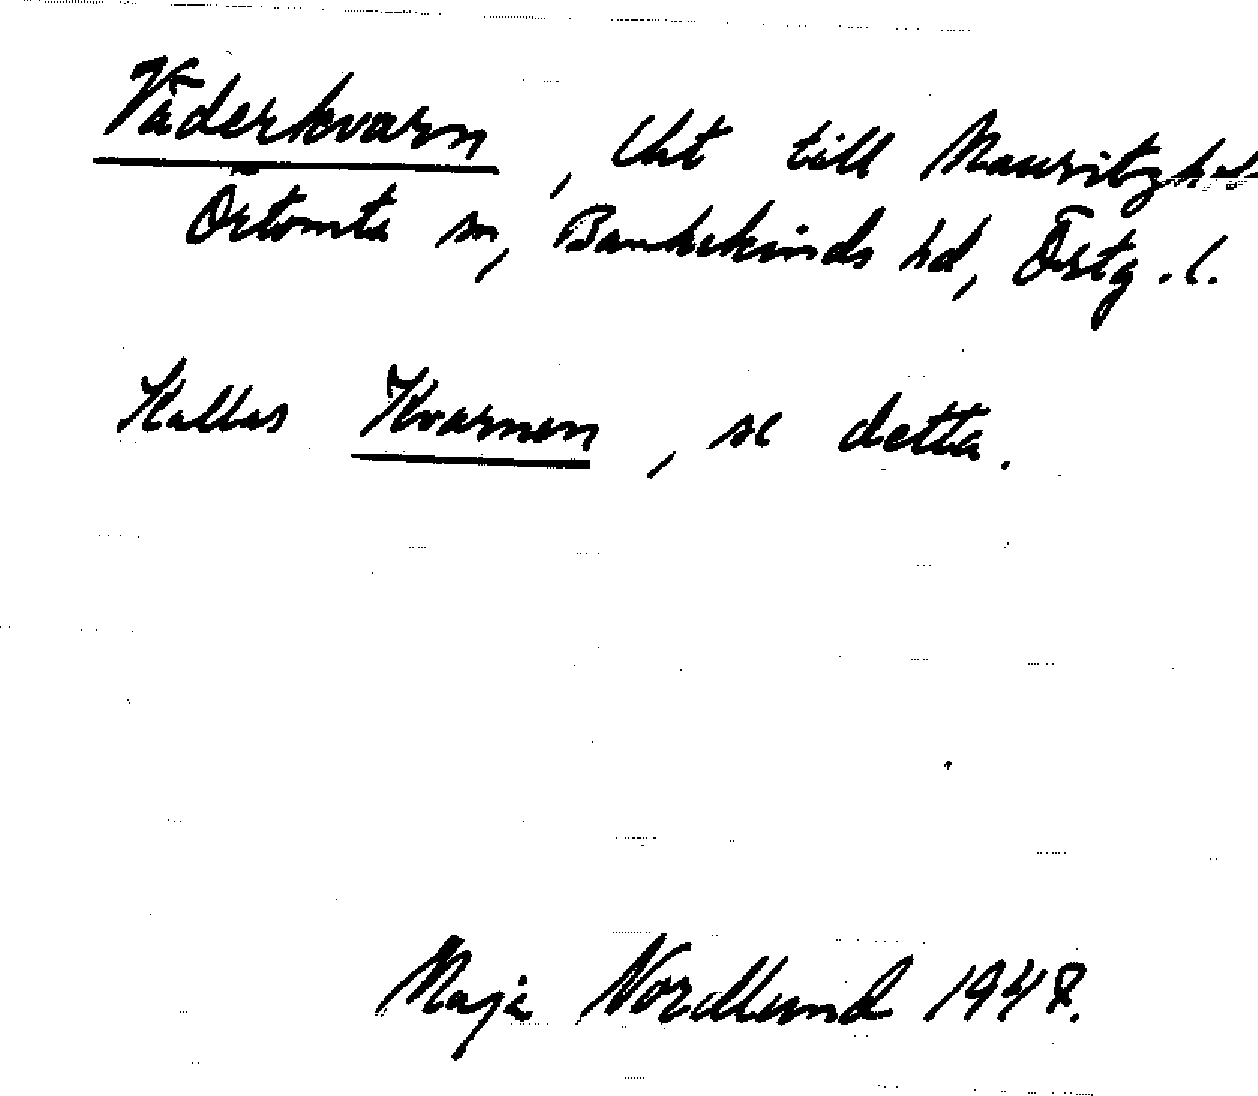 Väderkvarn, lht till Mauritzhol
Örtomta sn, Bankekinds hd, Östg. l.
Kallas Kvarnen, se detta.
Maja Nordlund 1948.